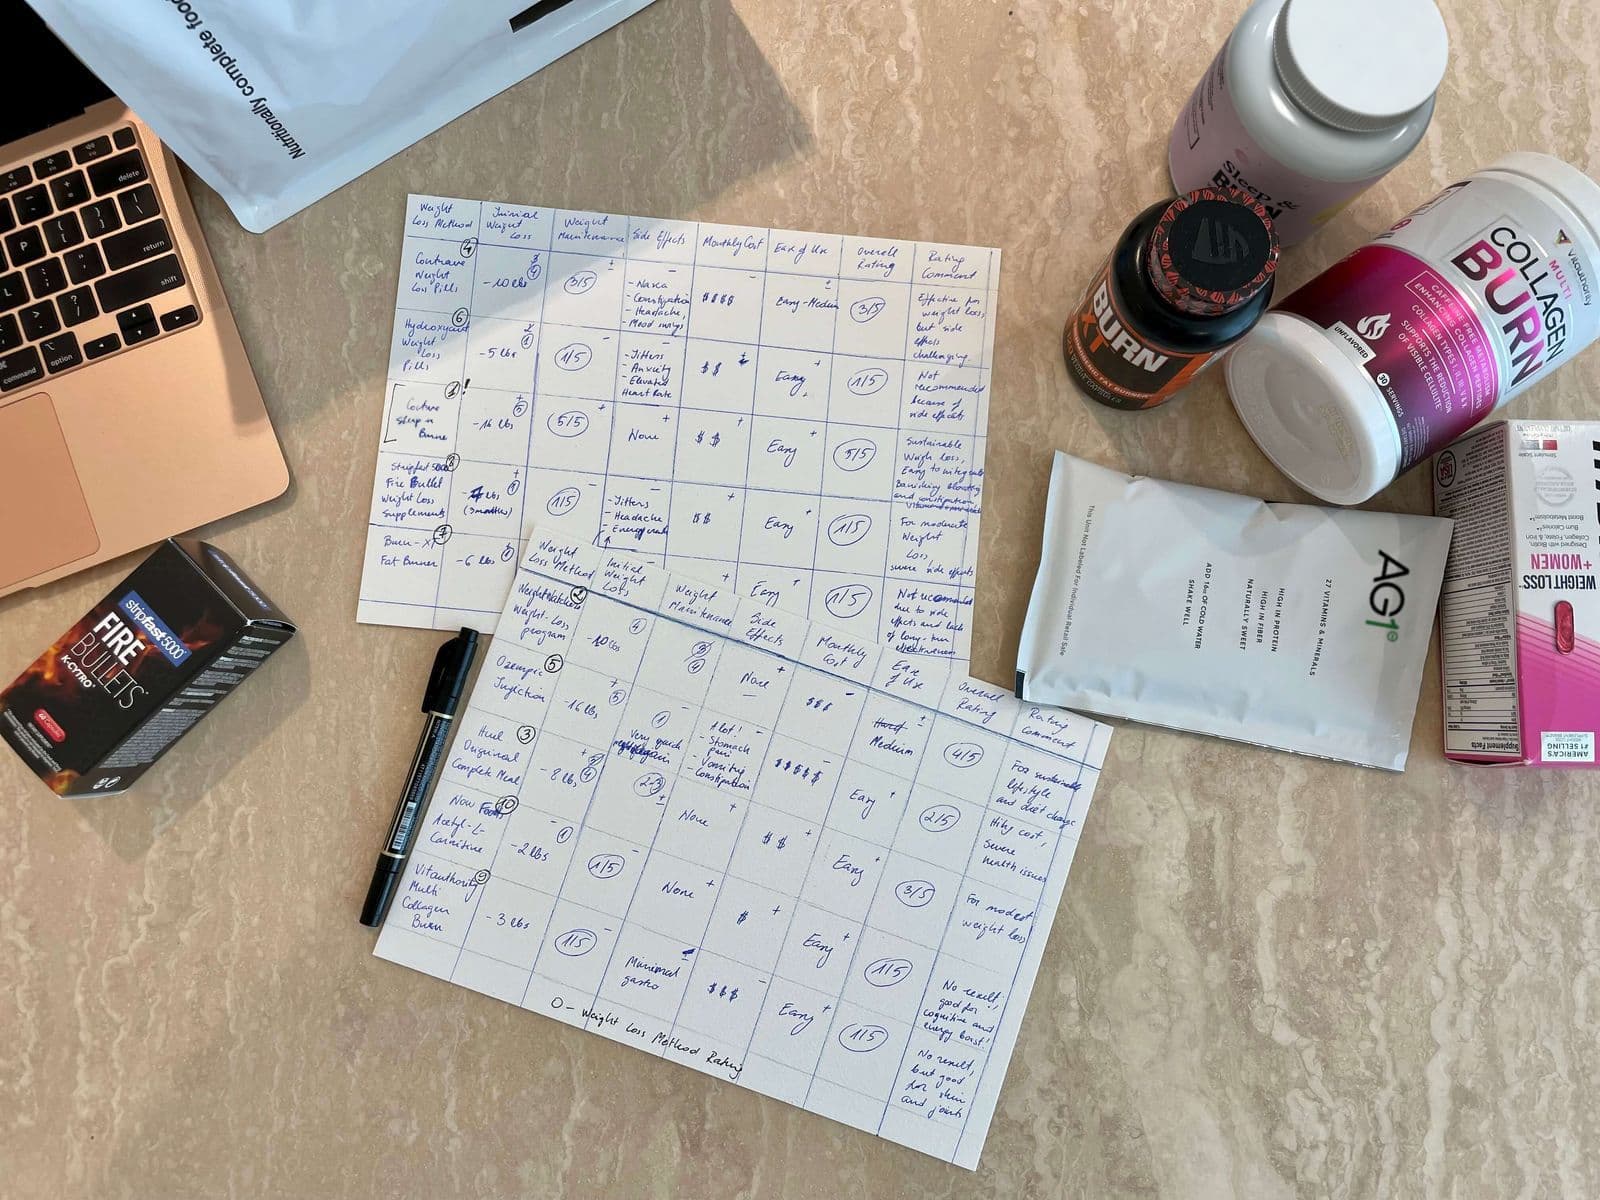 Nutritionally complete food
delete
return
shift
command
option
Weight
Loss Method
Initial
Weight
Loss
Weight
Maintenance
Side Effects
Monthly Cost
Ease of Use
Overall
Rating
Rating
Comment
4
Contrave
Weight
Loss Pills
-10 lbs
4
3/5
- Constipation
- Headache,
$$$$
Easy-Medium
3/5
Effective for
weight loss,
but side
effects
challenging.
6
Hydroxycut
Weight
Loss
Pills
-5 lbs
1
1/5
- Jitters
- Anxiety
- Elevated
Heart Rate
$$
Easy
1/5
Not
recommended
because of
side effects
1!
Sleep n
Burn
-16 lbs
5
5/5
None
$$
Easy
5/5
Sustainable
Weigh loss,
Easy to integrate
Banishing bloating
and constipation
8
Stripfast 5000
Fire Bullet
Weight Loss
Supplements
lbs
(3 months)
1
1/5
- Jitters
- Headache
$$
Easy
1/5
For moderate
Weight
Loss
severe side effects
7
Burn-XT
Fat Burner
-6 lbs
1
Easy
1/5
Not recommended
due to side
effects and lack
of long-term
effectiveness
Weight
Loss Method
Initial
Weight
Loss
Weight
Maintenance
Side
Effects
Monthly
Cost
Ease
of Use
Overall
Rating
Rating
Comment
2
Weight-Loss
program
-10 lbs
4
4
None
$$$
Medium
4/5
For sustainable
lifestyle
and diet change
5
Ozempic
Injection
-16 lbs
5
1
Very quick
A lot!
- Stomach
pain
- Vomiting
- Constipation
$$$$$
Easy
2/5
High cost,
severe
health issues
3
Huel
Original
Complete Meal
-8 lbs
4
2-3
None
$$
Easy
3/5
For modest
weight loss
10
Now Foods
Acetyl-L-
Carnitine
-2 lbs
1
1/5
None
$
Easy
1/5
No result,
good for
cognitive and
energy boost!
9
Vitauthority
Multi
Collagen
Burn
-3 lbs
1/5
Minimal
gastro
$$$
Easy
1/5
No result,
but good
for skin
and joints
O - Weight Loss Method Rating
stripfast5000
FIRE
BULLETS
K-CYTRO
60 Capsules
Sleep &
BURN
BURN
XT
THERMOGENIC FAT BURNER
Vitauthority
MULTI
COLLAGEN
BURN
CAFFEINE FREE METABOLISM
ENHANCING COLLAGEN PEPTIDES
COLLAGEN TYPES I, II, III, V & X
SUPPORTS THE REDUCTION
OF VISIBLE CELLULITE
UNFLAVORED
30
SERVINGS
AG1
27 VITAMINS & MINERALS
HIGH IN PROTEIN
HIGH IN FIBER
NATURALLY SWEET
ADD 16oz OF COLD WATER
SHAKE WELL
This Unit Not Labeled For Individual Retail Sale
WEIGHT LOSS
+WOMEN
Designed with Biotin,
Collagen, Folate, & Iron
Burn Calories
Boost Metabolism
Stimulant Scale
AMERICA'S
#1 SELLING
Supplement Facts